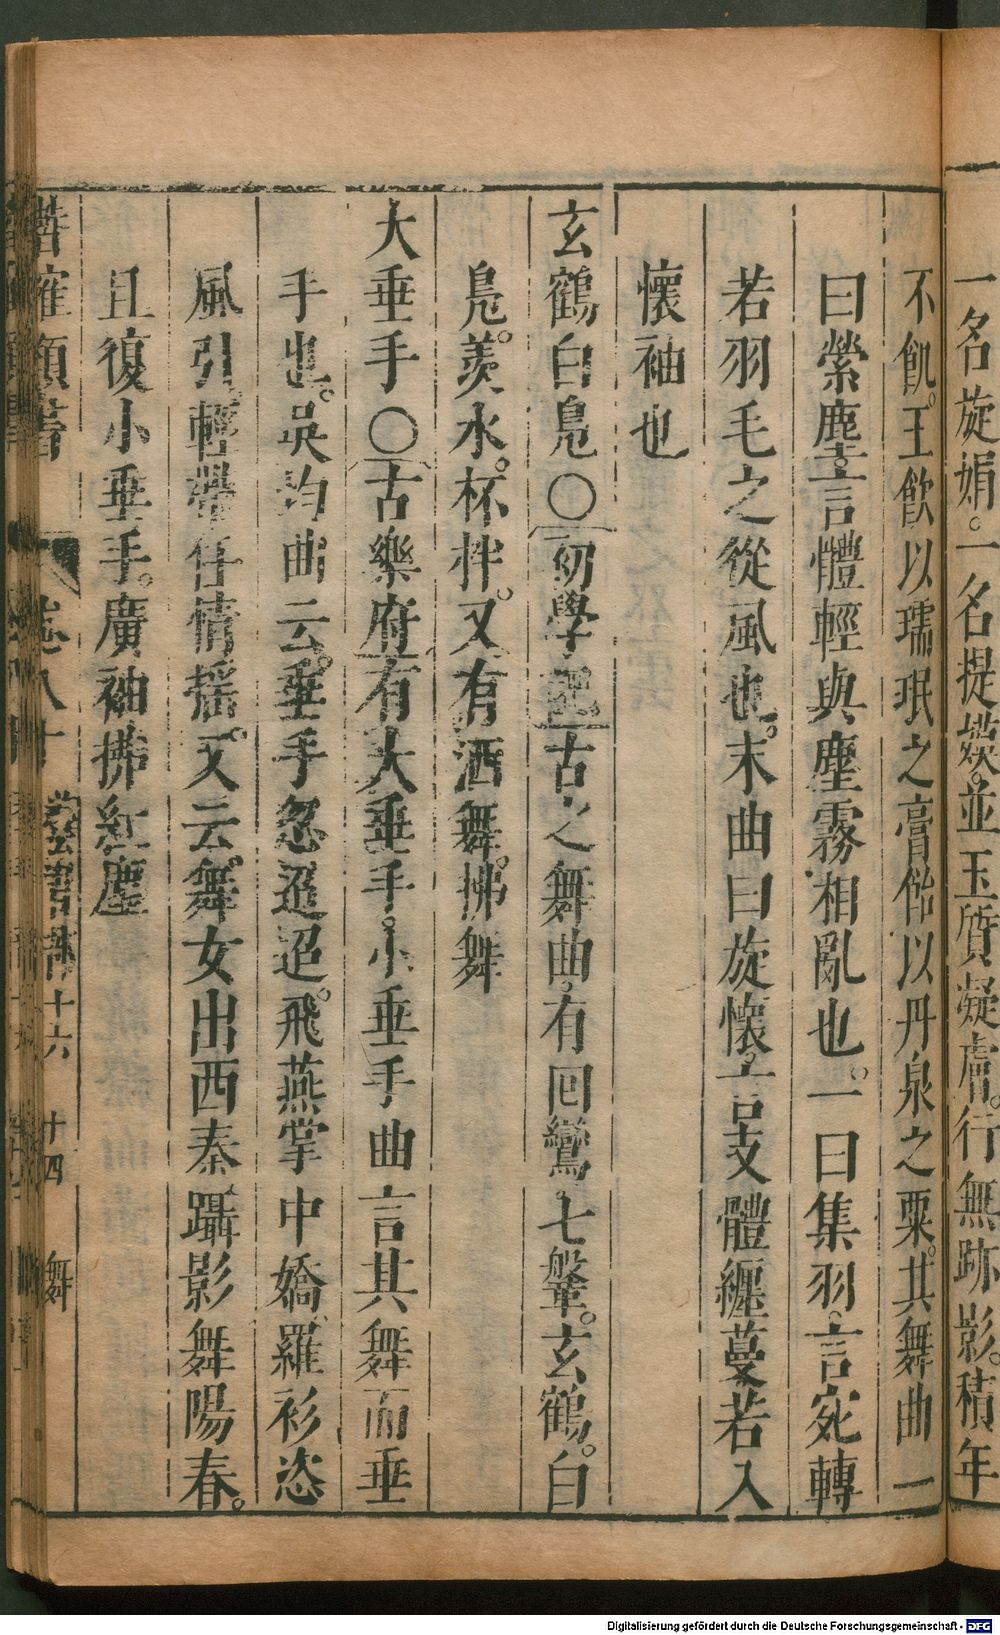 一名旋娟。一名提嫫。並玉質凝膚。行無跡影。積年
不飢。王飲以瓀珉之膏。飴以丹泉之粟。其舞曲一
曰縈塵。言體輕與塵霧相亂也。一曰集羽。言宛轉
若羽毛之從風也。末曲曰旋懷。言支體纏蔓若入
懷袖也
玄鶴白鳧○初學記古之舞曲。有回鸞。七盤。玄鶴。白
鳧。羨水。杯拌。又有酒舞。拂舞
大垂手○古樂府有大垂手。小垂手曲言其舞而垂
手也。吳均曲云。垂手忽迢迢。飛燕掌中嬌。羅衫恣
風引。輕舉任情搖。又云。舞女出西秦。躡影舞陽春。
且復小垂手。廣袖拂紅塵
卷八十 藝習部十六 十四 舞
Digitalisierung gefördert durch die Deutsche Forschungsgemeinschaft - DFG